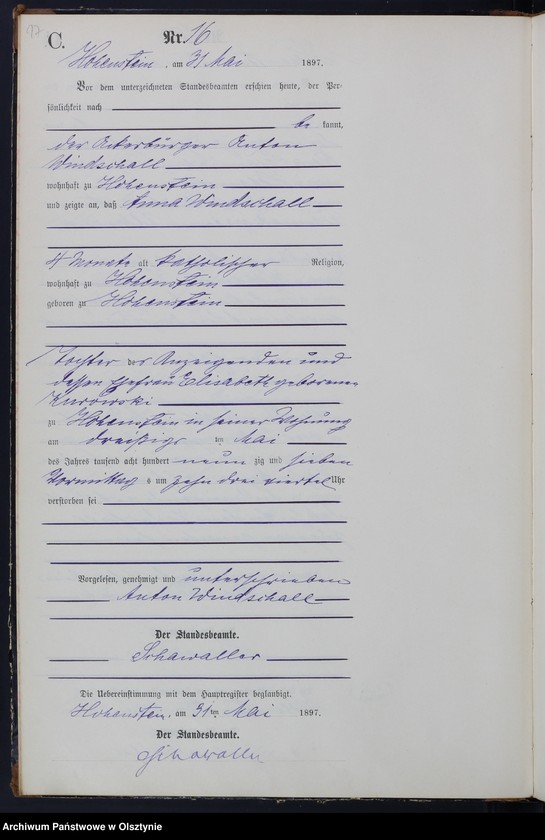 17
C.
Nr. 16
Hohenstein, am 31 Mai 1897.
Vor dem unterzeichneten Standesbeamten erschien heute, der Per-
sönlichkeit nach
be kannt,
der Ackerbürger Anton
Windschall
wohnhaft zu Hohenstein
und zeigte an, daß Anna Windschall
4 Monate alt katholischer Religion,
wohnhaft zu Hohenstein
geboren zu Hohenstein
Tochter des Anzeigenden und
dessen Ehefrau Elisabeth geborenen
Kurowski
zu Hohenstein in seiner Wohnung
am dreißigs ten Mai
des Jahres tausend acht hundert neun zig und sieben
Vormittag s um zehn drei viertel Uhr
verstorben sei
Vorgelesen, genehmigt und unterschrieben
Anton Windschall
Der Standesbeamte.
Schawaller
Die Uebereinstimmung mit dem Hauptregister beglaubigt.
Hohenstein, am 31ten Mai 1897.
Der Standesbeamte.
Schawaller
Archiwum Państwowe w Olsztynie